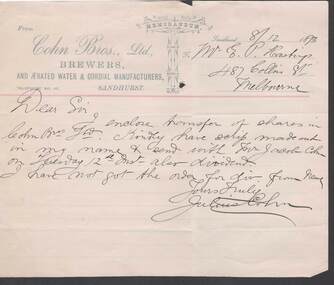 MEMORANDUM
From
Cohn Bros., Ltd.
BREWERS,
AND ÆRATED WATER & CORDIAL MANUFACTURERS,
SANDHURST.
Sandhurst 8/12 189
Mr E. P. Hastings
487 Collins St
Melbourne
Dear Sir
I enclose transfer of shares in
Cohn Bros Kindly have scrip made out
in my name & send with Mr Jacob Cohn
on Tuesday 12th Inst also dividend
I have not got the order for div. from
Yours Truly
Julius Cohn